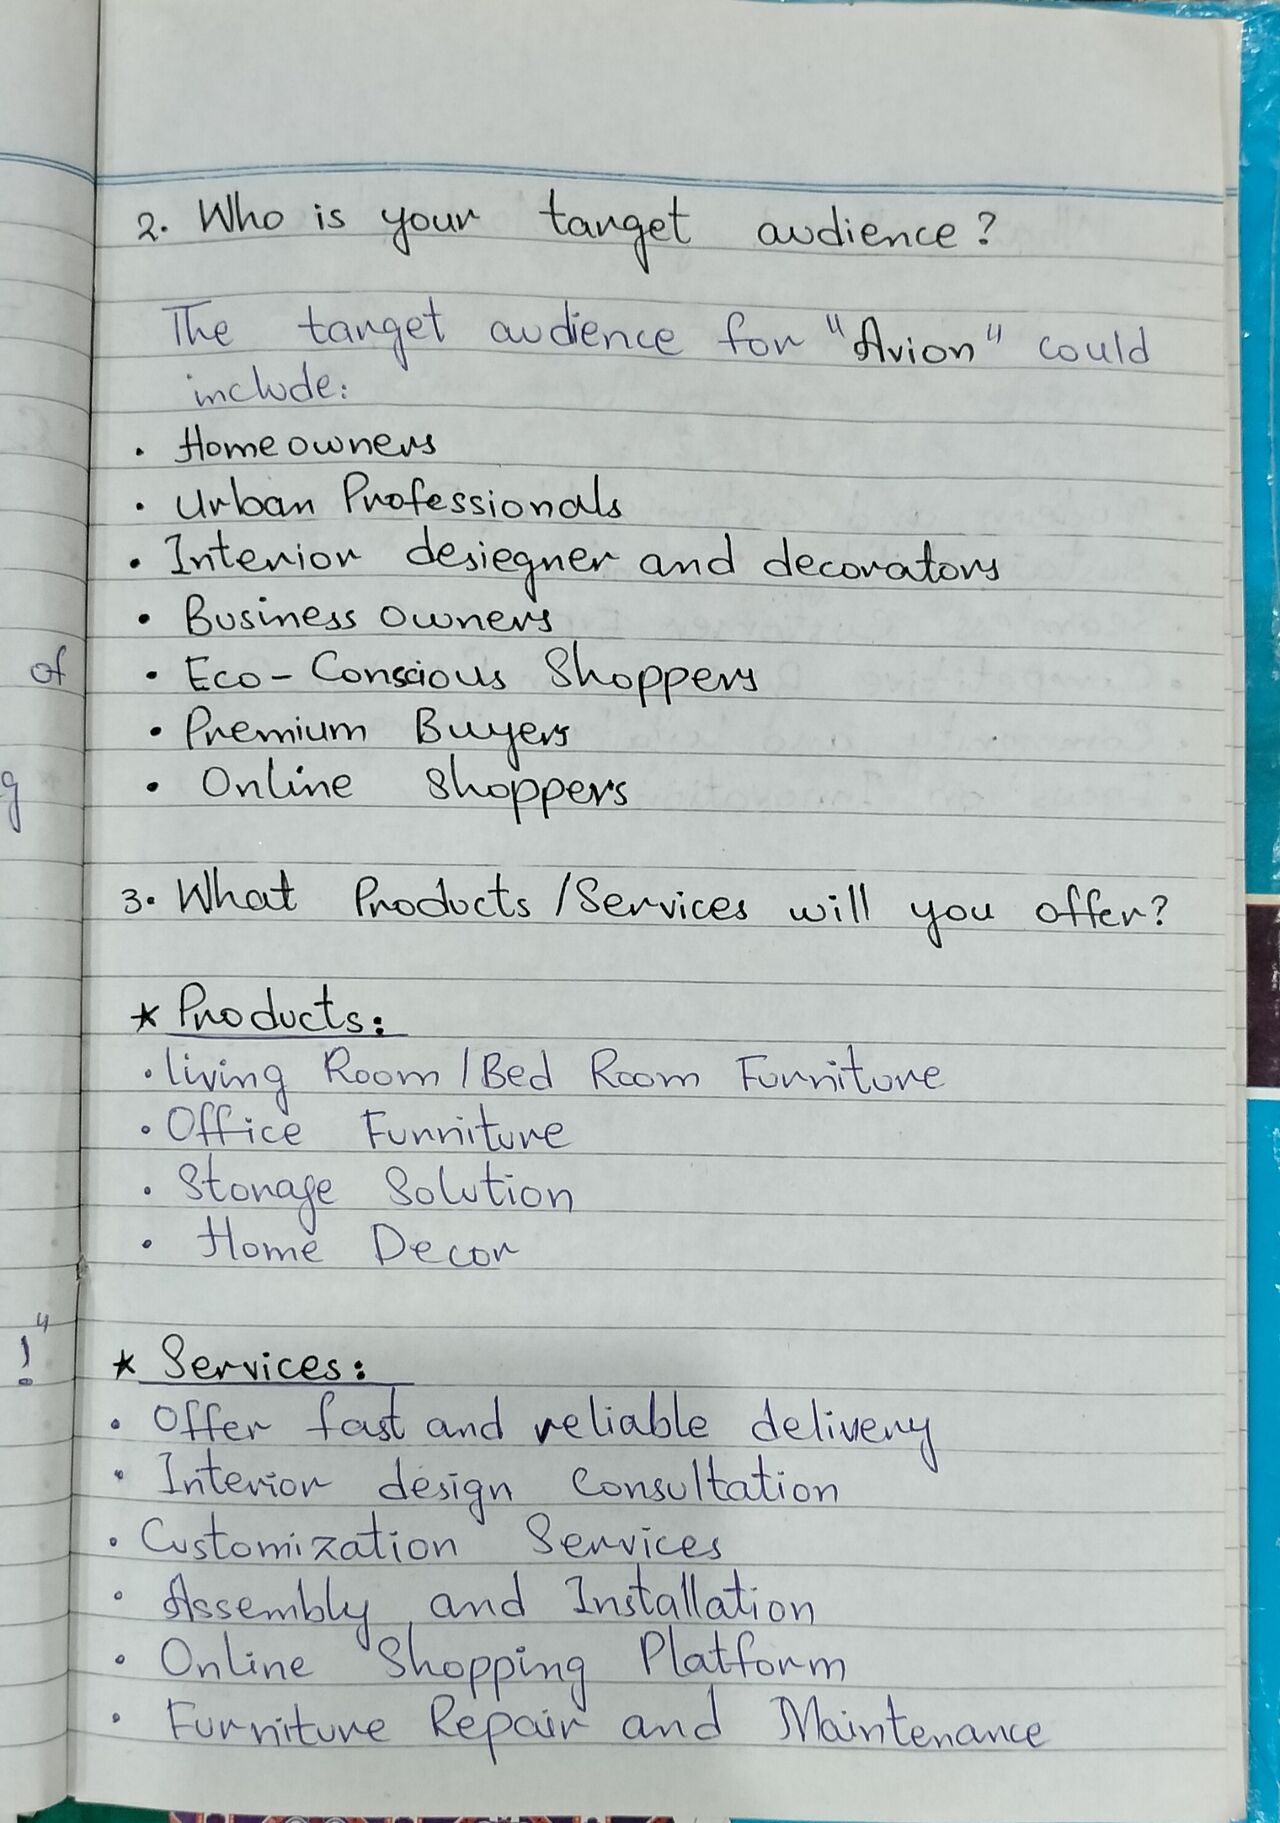 2. Who is your target audience?
The target audience for "Avion" could
include:
• Home owners
• Urban Professionals
• Interior desiegner and decorators
• Business Owners
• Eco-Conscious Shoppers
• Premium Buyers
• Online Shoppers
3. What Products/Services will you offer?
★ Products:
• living Room/Bed Room Furniture
• Office Furniture
• Storage Solution
• Home Decor
★ Services:
• Offer fast and reliable delivery
• Interior design Consultation
• Customization Services
• Assembly and Installation
• Online Shopping Platform
• Furniture Repair and Maintenance
of
g
!"